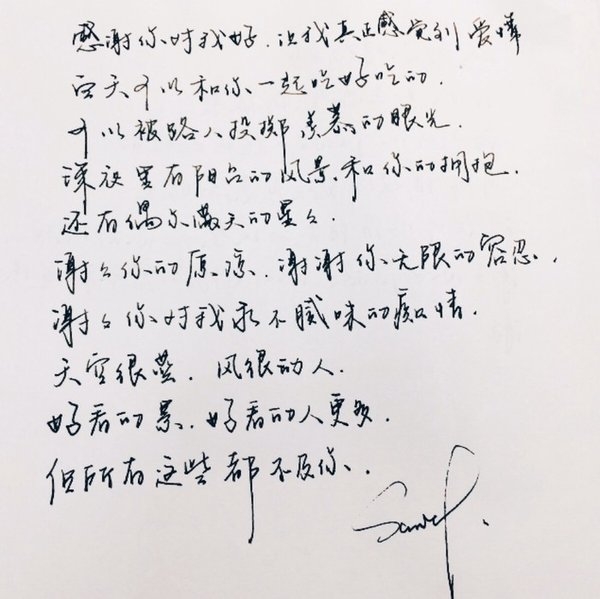 感谢你对我好.让我真正感觉到爱
白天可以和你一起吃好吃的
可以被路人投掷羡慕的眼光.
深夜里有阳台的风景.和你的拥抱.
还有偶尔满天的星々.
谢々你的原谅.谢谢你无限的容忍.
谢々你对我永不腻味的痴情.
天空很蓝.风很动人.
好看的景.好看的人更多.
但所有这些都不及你.